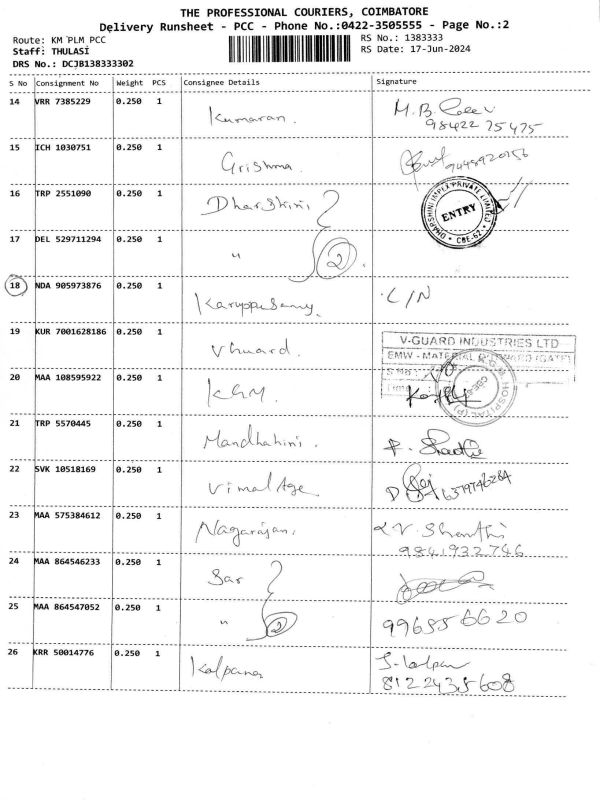 THE PROFESSIONAL COURIERS, COIMBATORE
Delivery Runsheet - PCC - Phone No.:0422-3505555 - Page No.:2
Route: KM PLM PCC
RS No.: 1383333
Staff: THULASI
RS Date: 17-Jun-2024
DRS No.: DCJB138333302
S No Consignment No Weight PCS Consignee Details Signature
14 VRR 7385229 0.250 1 Kumaran. M.B.
98422 75475
15 ICH 1030751 0.250 1 Grishma.
16 TRP 2551090 0.250 1 Dharshini
DHARSHINI IMPEX PRIVATE LIMITED
ENTRY
* CBE-62 *
17 DEL 529711294 0.250 1 " 2
18 NDA 905973876 0.250 1 Karuppusamy. L/N
19 KUR 7001628186 0.250 1 Vguard.
V-GUARD INDUSTRIES LTD
EMW - MATERIAL (GATE)
20 MAA 108595922 0.250 1 KGM
K.G.M. HOSPITAL (P)
21 TRP 5570445 0.250 1 Mandhahini.
22 SVK 10518169 0.250 1 Vimal Age 6379746284
23 MAA 575384612 0.250 1 Nagarajan. V. Shanthi
9841932746
24 MAA 864546233 0.250 1 Sar
25 MAA 864547052 0.250 1 " 2 9965556620
26 KRR 50014776 0.250 1 Kalpana
8122435608